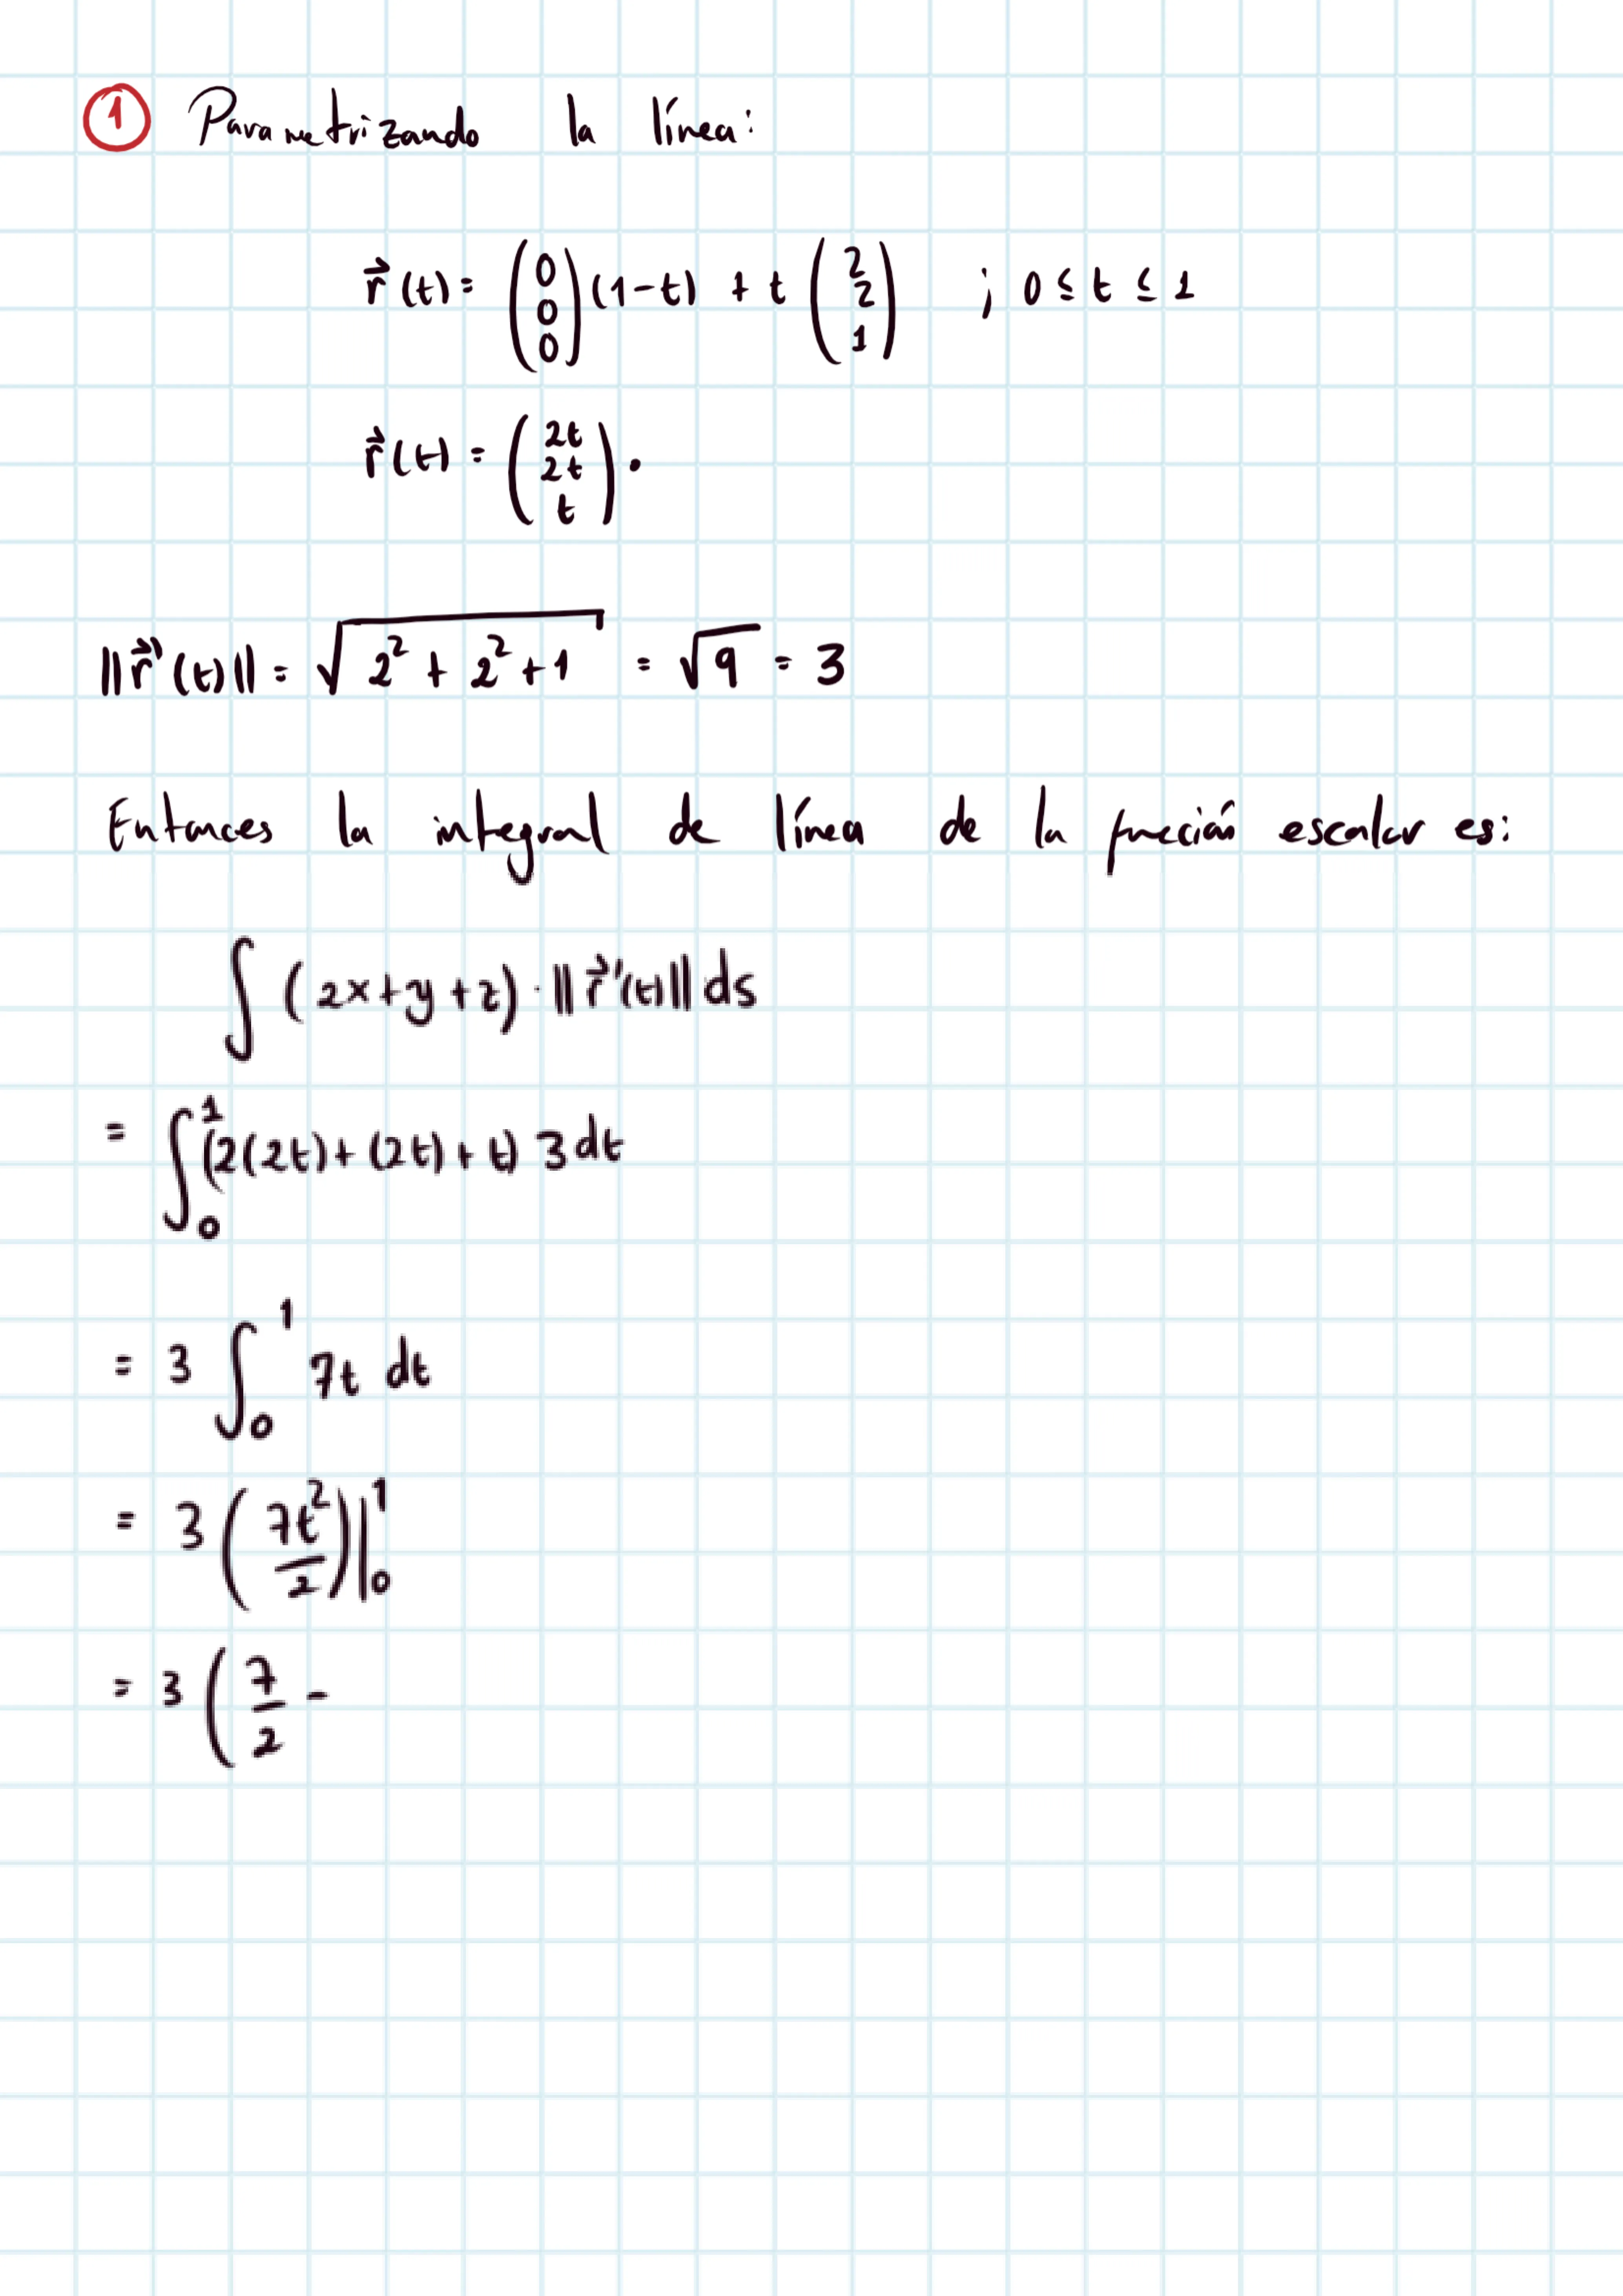 1 Parametrizando la línea:
r⃗(t) = (0 0 0)(1-t) + t (2 2 1) ; 0 ≤ t ≤ 1
r⃗(t) = (2t 2t t).
||r⃗'(t)|| = √(2² + 2² + 1) = √9 = 3
Entonces la integral de línea de la función escalar es:
∫ (2x+y+z) · ||r⃗'(t)|| ds
= ∫₀¹ (2(2t) + (2t) + t) 3 dt
= 3 ∫₀¹ 7t dt
= 3 (7t²/2)|₀¹
= 3 (7/2 -